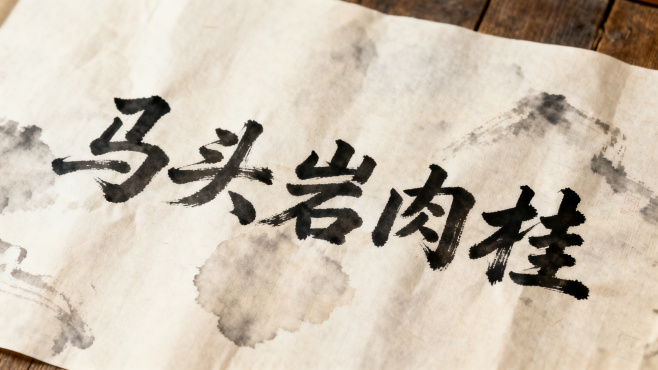 马头岩肉桂